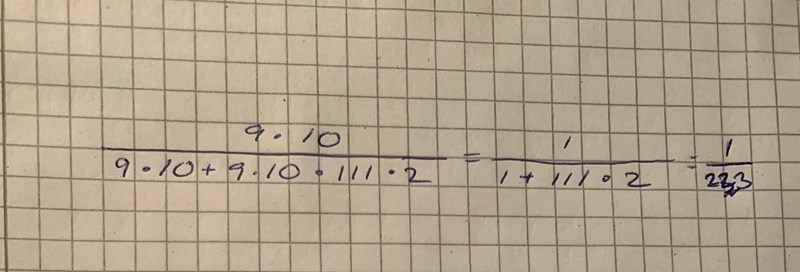 9·10 / 9·10+9·10·111·2 = 1 / 1+111·2 = 1 / 223